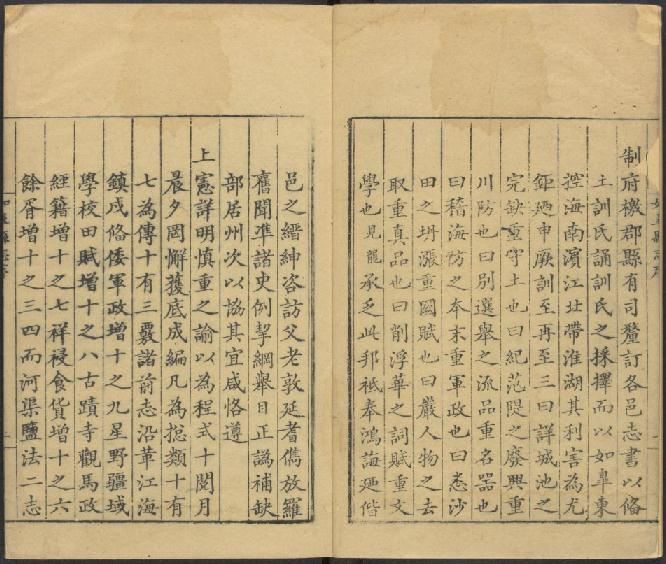 制府檄郡縣有司釐訂各邑志書以俻
土訓氏誦訓氏之採擇而以如臯東
控海南濱江北帶淮湖其利害為尤
鉅廼申厥訓至再至三曰詳城池之
完缺重守土也曰紀范隄之廢興重
川防也曰別選舉之流品重名器也
曰稽海防之本末重軍政也曰悉沙
田之坍漲重國賦也曰嚴人物之去
取重真品也曰削浮華之詞賦重文
學也見龍承乏此邦祗奉鴻誨廼偕
邑之縉紳咨訪父老敦延耆儁放羅
舊聞凖諸史例挈綱舉目正譌補缺
部居州次以協其宜咸恪遵
上憲詳明慎重之諭以為程式十閱月
晨夕罔懈獲底成編凡為総類十有
七為傳十有三覈諸前志沿革江海
鎮戍俻倭軍政增十之九星野疆域
學校田賦增十之八古蹟寺觀馬政
經籍增十之七祥祲食貨增十之六
餘胥增十之三四而河渠鹽法二志